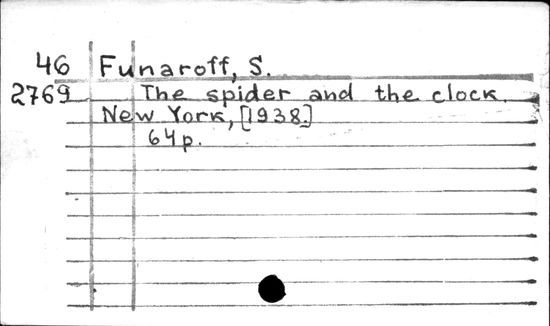 46 Funaroff, S.
2769 The spider and the clock.
New York, [1938.]
64 p.